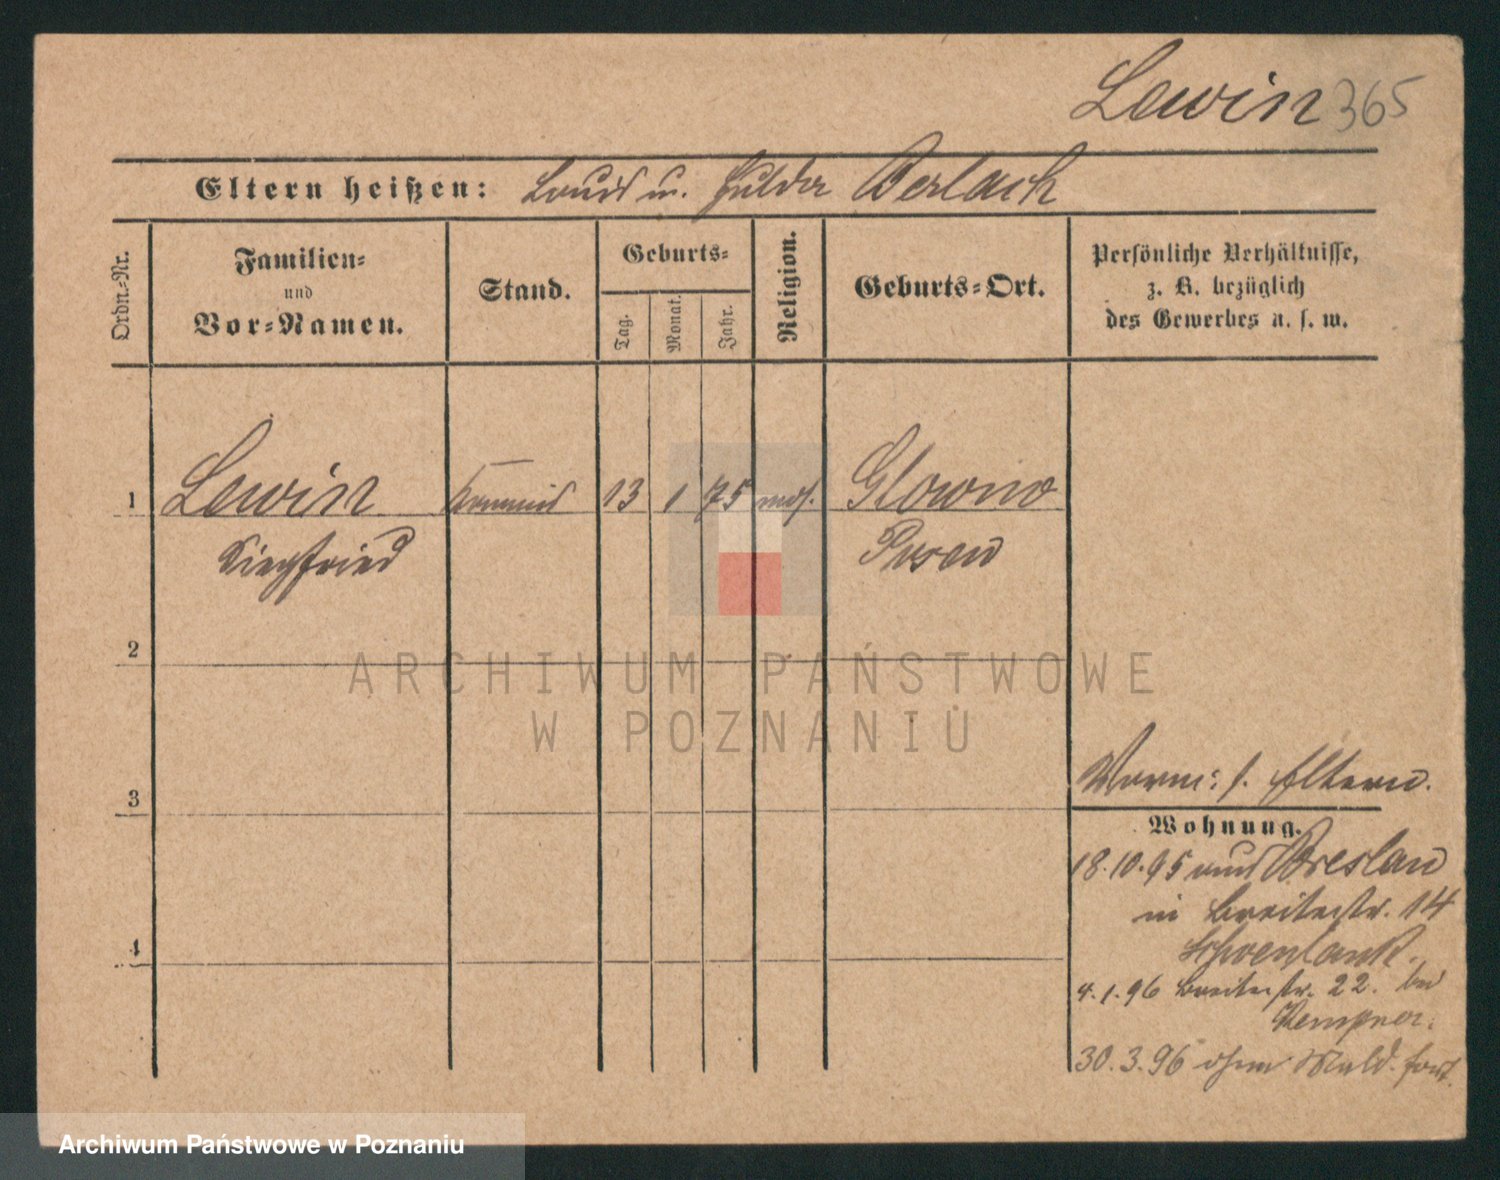 Lewin 365
Eltern heißen: Louis u. Hulda Berlach
Ordn.-Nr.
Familien-
und
Vor-Namen.
Stand.
Geburts-
Tag.
Monat.
Jahr.
Religion.
Geburts-Ort.
Persönliche Verhältnisse,
z. B. bezüglich
des Gewerbes u. s. w.
1 Lewin Kommis 13 1 75 mos. Glowno
Siegfried Posen
2
3
4
Vorm: s. Eltern.
Wohnung.
18.10.95 aus Breslau
in Breitestr. 14
Schoenlank.
4.1.96 Breitestr. 22. bei
Kempner.
30.3.96 ohne Meld. fort.
ARCHIWUM PAŃSTWOWE
W POZNANIU
Archiwum Państwowe w Poznaniu